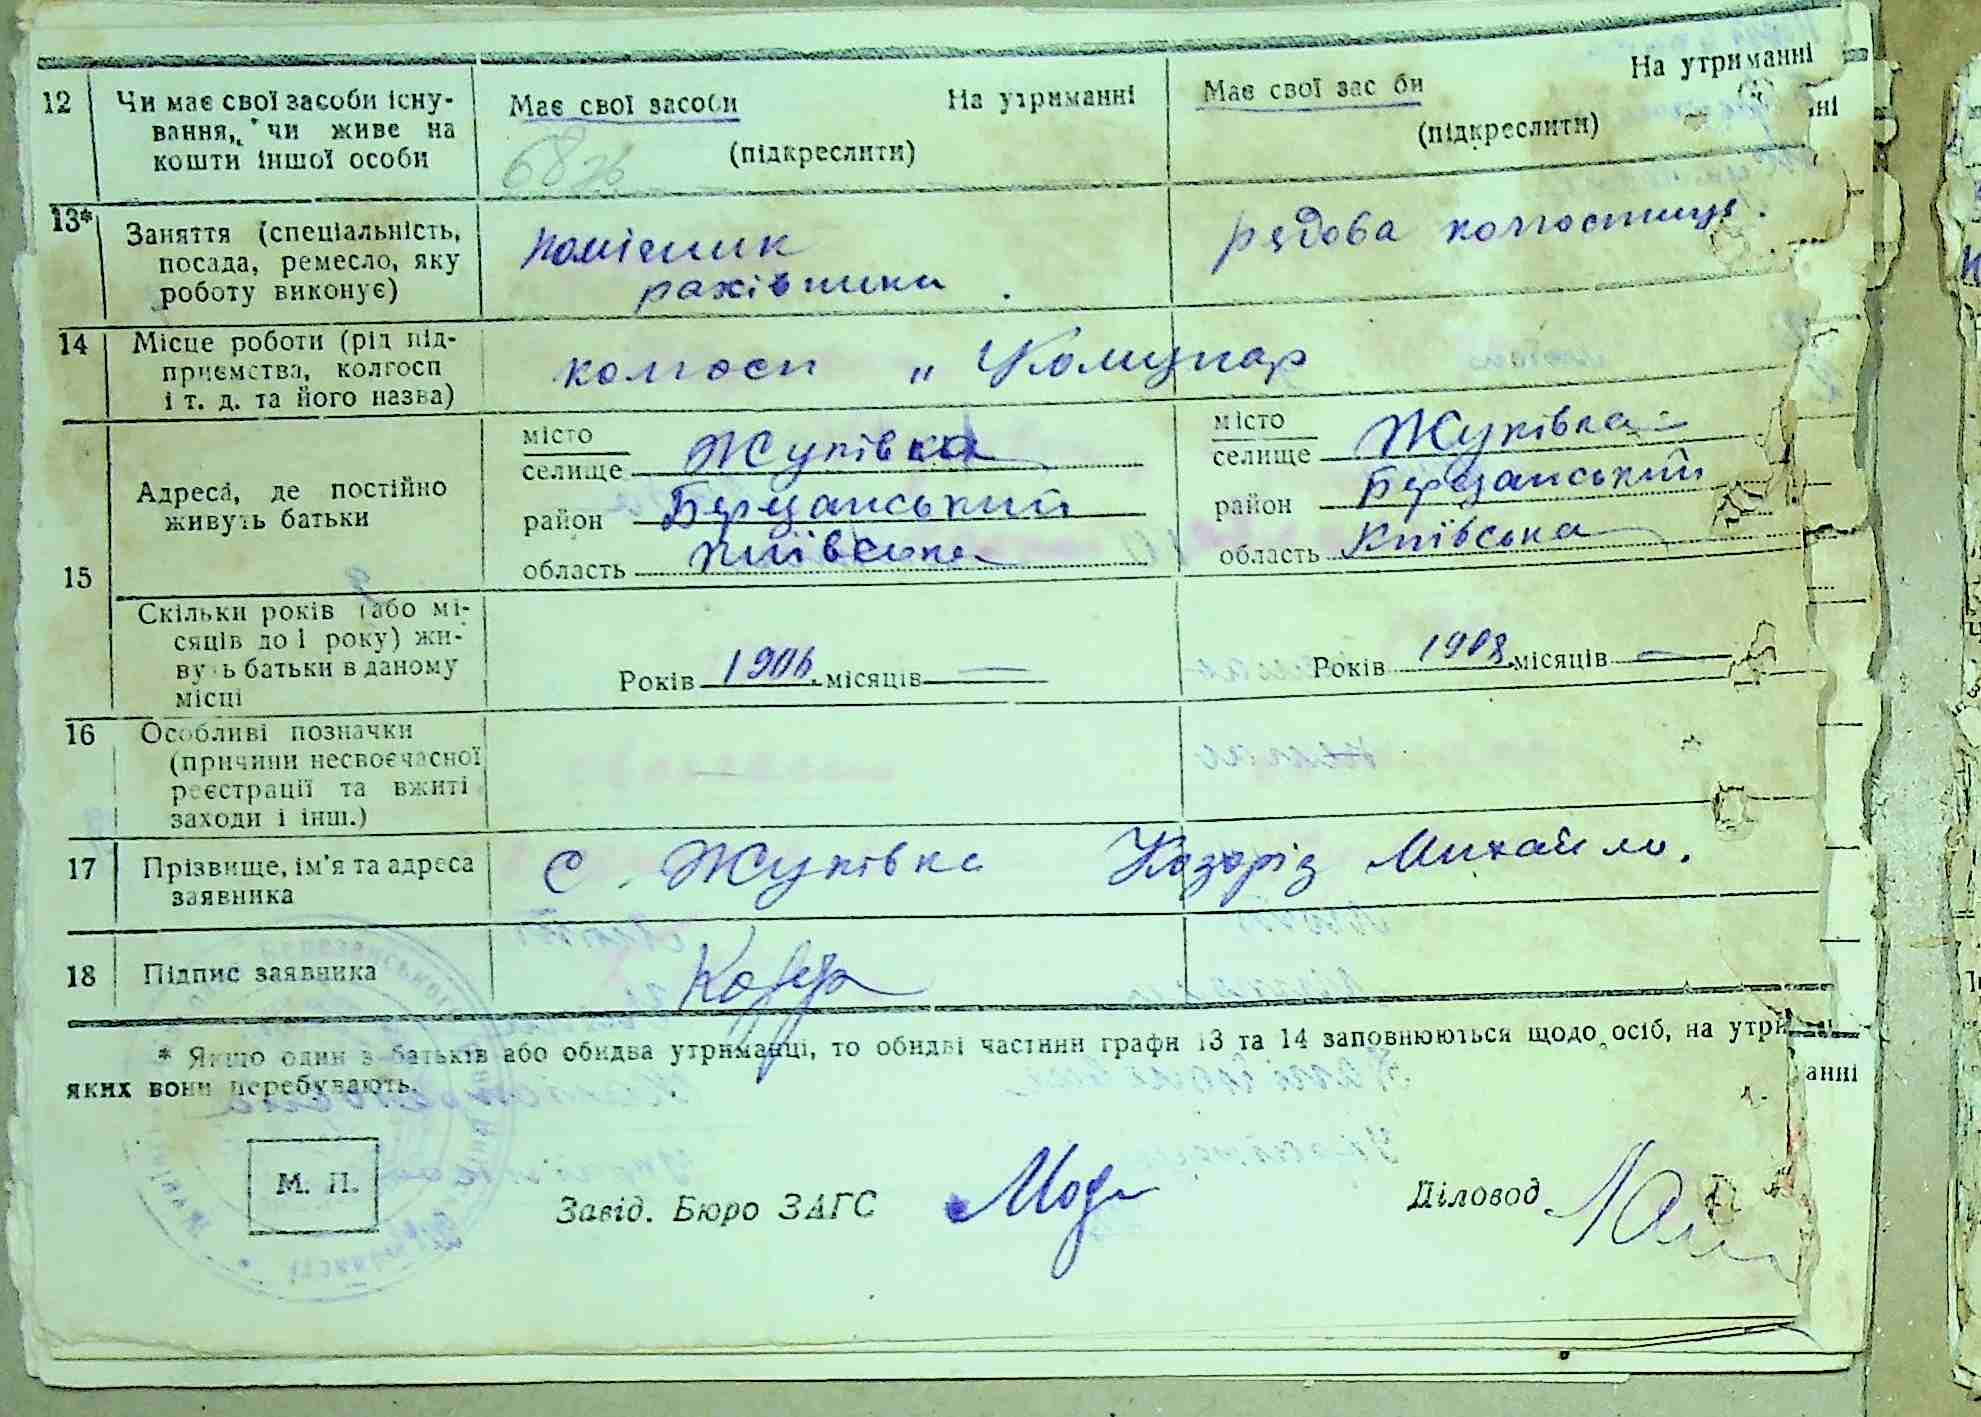 На утриманні
12 Чи має свої засоби існу- Має свої засоби На утриманні Має свої зас би
вання, чи живе на (підкреслити) (підкреслити)
кошти іншої особи
13* Заняття (спеціальність, помісник рядова колгоспниця.
посада, ремесло, яку рахівника
роботу виконує)
14 Місце роботи (рід під-
приємства, колгосп колгосп „ Комунар
і т. д. та його назва)
місто Жуківка місто Жуківка
селище селище
Адреса, де постійно район Березанський район Березанський
живуть батьки область Київська область Київська
15
Скільки років (або мі-
сяців до 1 року) жи-
ву ь батьки в даному Років 1906. місяців — Років 1908. місяців —
місці
16 Особливі позначки
(причини несвоєчасної
реєстрації та вжиті
заходи і інш.)
17 Прізвище, ім'я та адреса с. Жуківка Козоріз Михайло.
заявника
18 Підпис заявника
* Якщо один з батьків або обидва утриманці, то обидві частини графи 13 та 14 заповнюються щодо осіб, на утри
яких вони перебувають. анні
М. П. Завід. Бюро ЗАГС Діловод